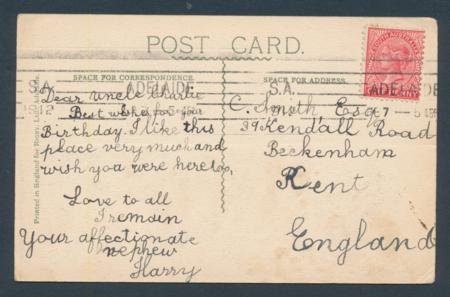 POST CARD.
SPACE FOR CORRESPONDENCE.
SPACE FOR ADDRESS.
ADELAIDE
S.A.
ADELAIDE
SOUTH AUSTRALIA
Dear Uncle
Best wishes for your
Birthday. I like this
place very much and
wish you were here too,
Love to all
I remain
Your affectionate
nephew
Harry
C. Smith Esq
39 Kendall Road
Beckenham
Kent
England
Printed in England for